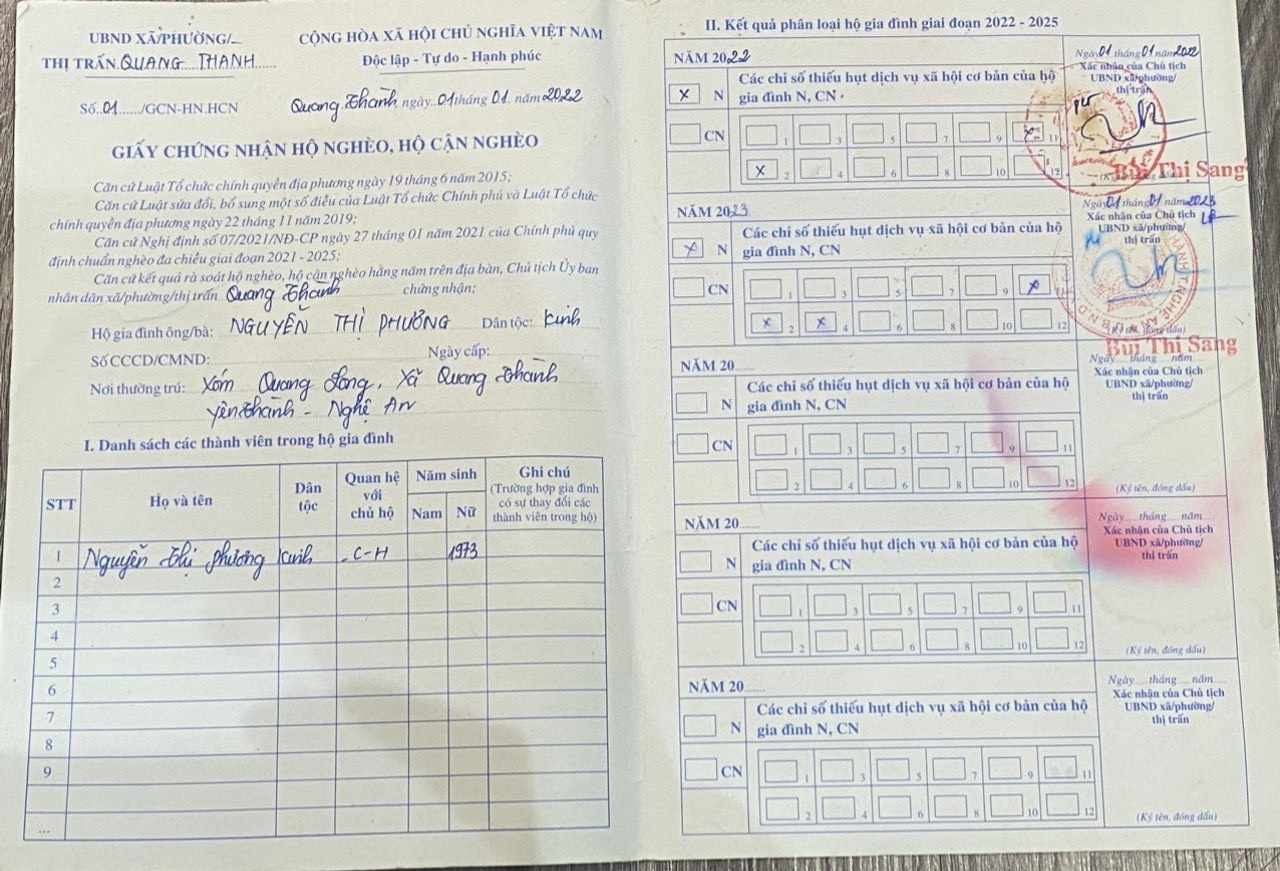 UBND XÃ/PHƯỜNG/
THỊ TRẤN QUANG THÀNH
CỘNG HÒA XÃ HỘI CHỦ NGHĨA VIỆT NAM
Độc lập - Tự do - Hạnh phúc
Số 01 /GCN-HN.HCN
Quang Thành ngày 01 tháng 01 năm 2022
GIẤY CHỨNG NHẬN HỘ NGHÈO, HỘ CẬN NGHÈO
Căn cứ Luật Tổ chức chính quyền địa phương ngày 19 tháng 6 năm 2015;
Căn cứ Luật sửa đổi, bổ sung một số điều của Luật Tổ chức Chính phủ và Luật Tổ chức
chính quyền địa phương ngày 22 tháng 11 năm 2019;
Căn cứ Nghị định số 07/2021/NĐ-CP ngày 27 tháng 01 năm 2021 của Chính phủ quy
định chuẩn nghèo đa chiều giai đoạn 2021 - 2025;
Căn cứ kết quả rà soát hộ nghèo, hộ cận nghèo hằng năm trên địa bàn, Chủ tịch Ủy ban
nhân dân xã/phường/thị trấn Quang Thành chứng nhận:
Hộ gia đình ông/bà: NGUYỄN THỊ PHƯƠNG Dân tộc: Kinh
Số CCCD/CMND: Ngày cấp:
Nơi thường trú: Xóm Quang Long, Xã Quang Thành
Yên Thành - Nghệ An
I. Danh sách các thành viên trong hộ gia đình
STT Họ và tên Dân tộc Quan hệ với chủ hộ Năm sinh Nam Nữ Ghi chú (Trường hợp gia đình có sự thay đổi các thành viên trong hộ)
1 Nguyễn Thị Phương Kinh C-H 1973
2
3
4
5
6
7
8
9
...
II. Kết quả phân loại hộ gia đình giai đoạn 2022 - 2025
NĂM 2022
x N
CN
Các chỉ số thiếu hụt dịch vụ xã hội cơ bản của hộ
gia đình N, CN
1 3 5 7 9 x 11
x 2 4 6 8 10 12
Ngày 01 tháng 01 năm 2022
Xác nhận của Chủ tịch
UBND xã/phường/
thị trấn
Bùi Thị Sang
NĂM 2023
x N
CN
Các chỉ số thiếu hụt dịch vụ xã hội cơ bản của hộ
gia đình N, CN
1 3 5 7 9 x 11
x 2 x 4 6 8 10 12
Ngày 01 tháng 01 năm 2023
Xác nhận của Chủ tịch
UBND xã/phường/
thị trấn
(Ký tên, đóng dấu)
Bùi Thị Sang
NĂM 20
N
CN
Các chỉ số thiếu hụt dịch vụ xã hội cơ bản của hộ
gia đình N, CN
1 3 5 7 9 11
2 4 6 8 10 12
Ngày tháng năm
Xác nhận của Chủ tịch
UBND xã/phường/
thị trấn
(Ký tên, đóng dấu)
NĂM 20
N
CN
Các chỉ số thiếu hụt dịch vụ xã hội cơ bản của hộ
gia đình N, CN
1 3 5 7 9 11
2 4 6 8 10 12
Ngày tháng năm
Xác nhận của Chủ tịch
UBND xã/phường/
thị trấn
(Ký tên, đóng dấu)
NĂM 20
N
CN
Các chỉ số thiếu hụt dịch vụ xã hội cơ bản của hộ
gia đình N, CN
1 3 5 7 9 11
2 4 6 8 10 12
Ngày tháng năm
Xác nhận của Chủ tịch
UBND xã/phường/
thị trấn
(Ký tên, đóng dấu)